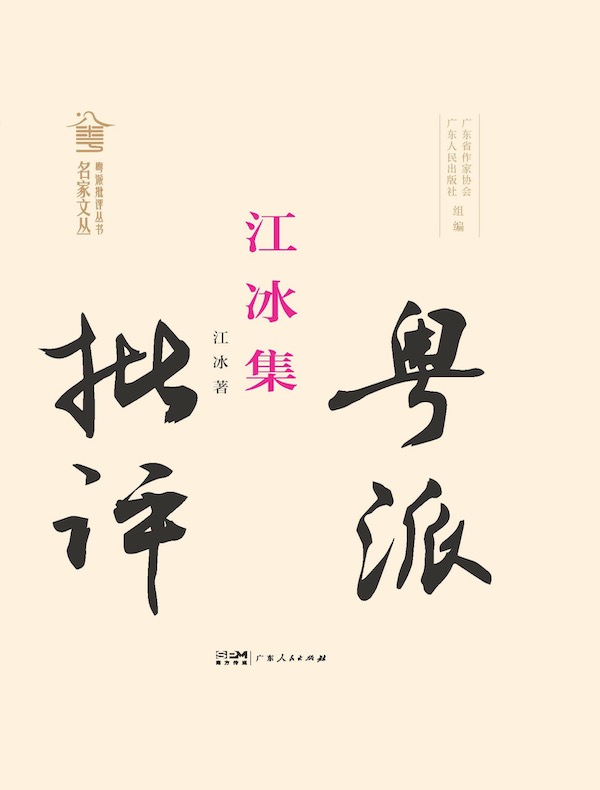 广东省作家协会
广东人民出版社
组编
粤派
江冰集
江冰著
批评
粤派批评丛书
名家文丛
SPM
南方传媒
广东人民出版社